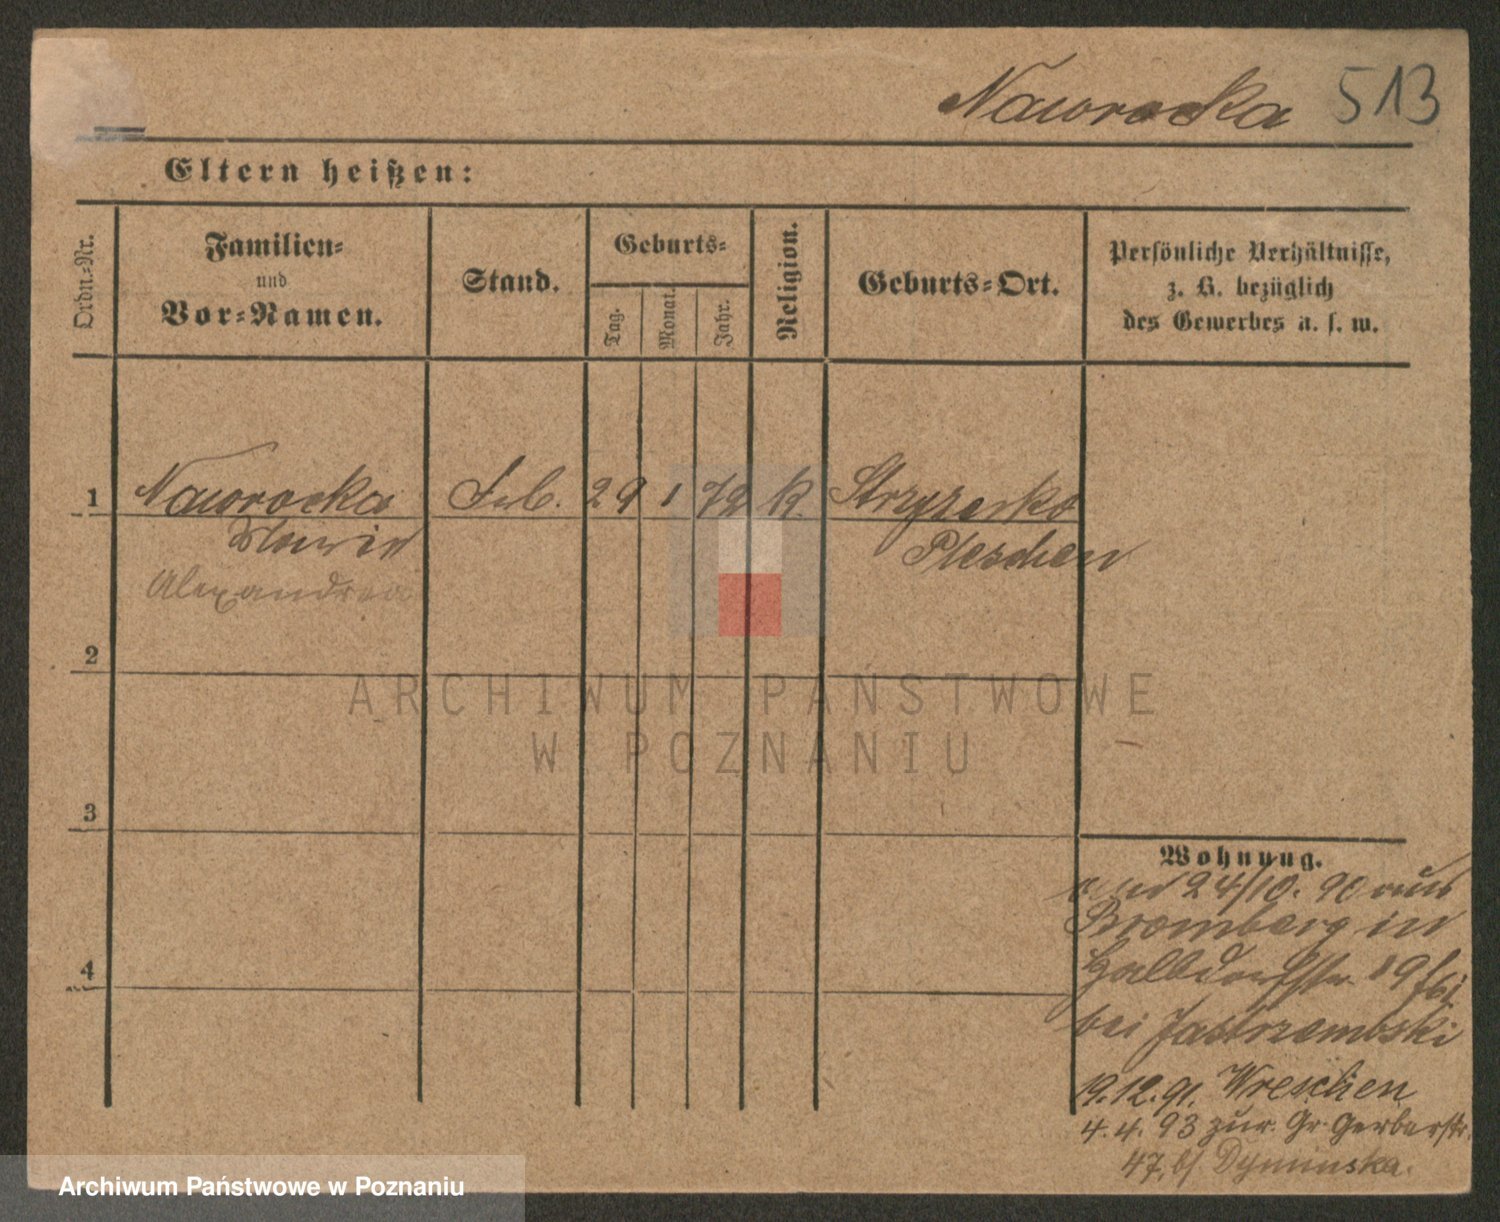 Nawrocka 513
Eltern heißen:
Ordn=Nr.
Familien=
und
Vor=Namen.
Stand.
Geburts=
Tag.
Monat.
Jahr.
Religion.
Geburts=Ort.
Persönliche Verhältnisse,
z. B. bezüglich
des Gewerbes u. s. w.
1 Nawrocka 29 1 72 K.
Maria Pleschen
Alexandra
2
3
4
ARCHIWUM PAŃSTWOWE
W POZNANIU
Wohnung.
24/10. 90 aus
Bromberg in
Halbdorfstr. 19
bei Jastrzembski
19.12.91. Wreschen
4.4.93 zur. Gr. Gerberstr.
47, b/ Dyminska.
Archiwum Państwowe w Poznaniu